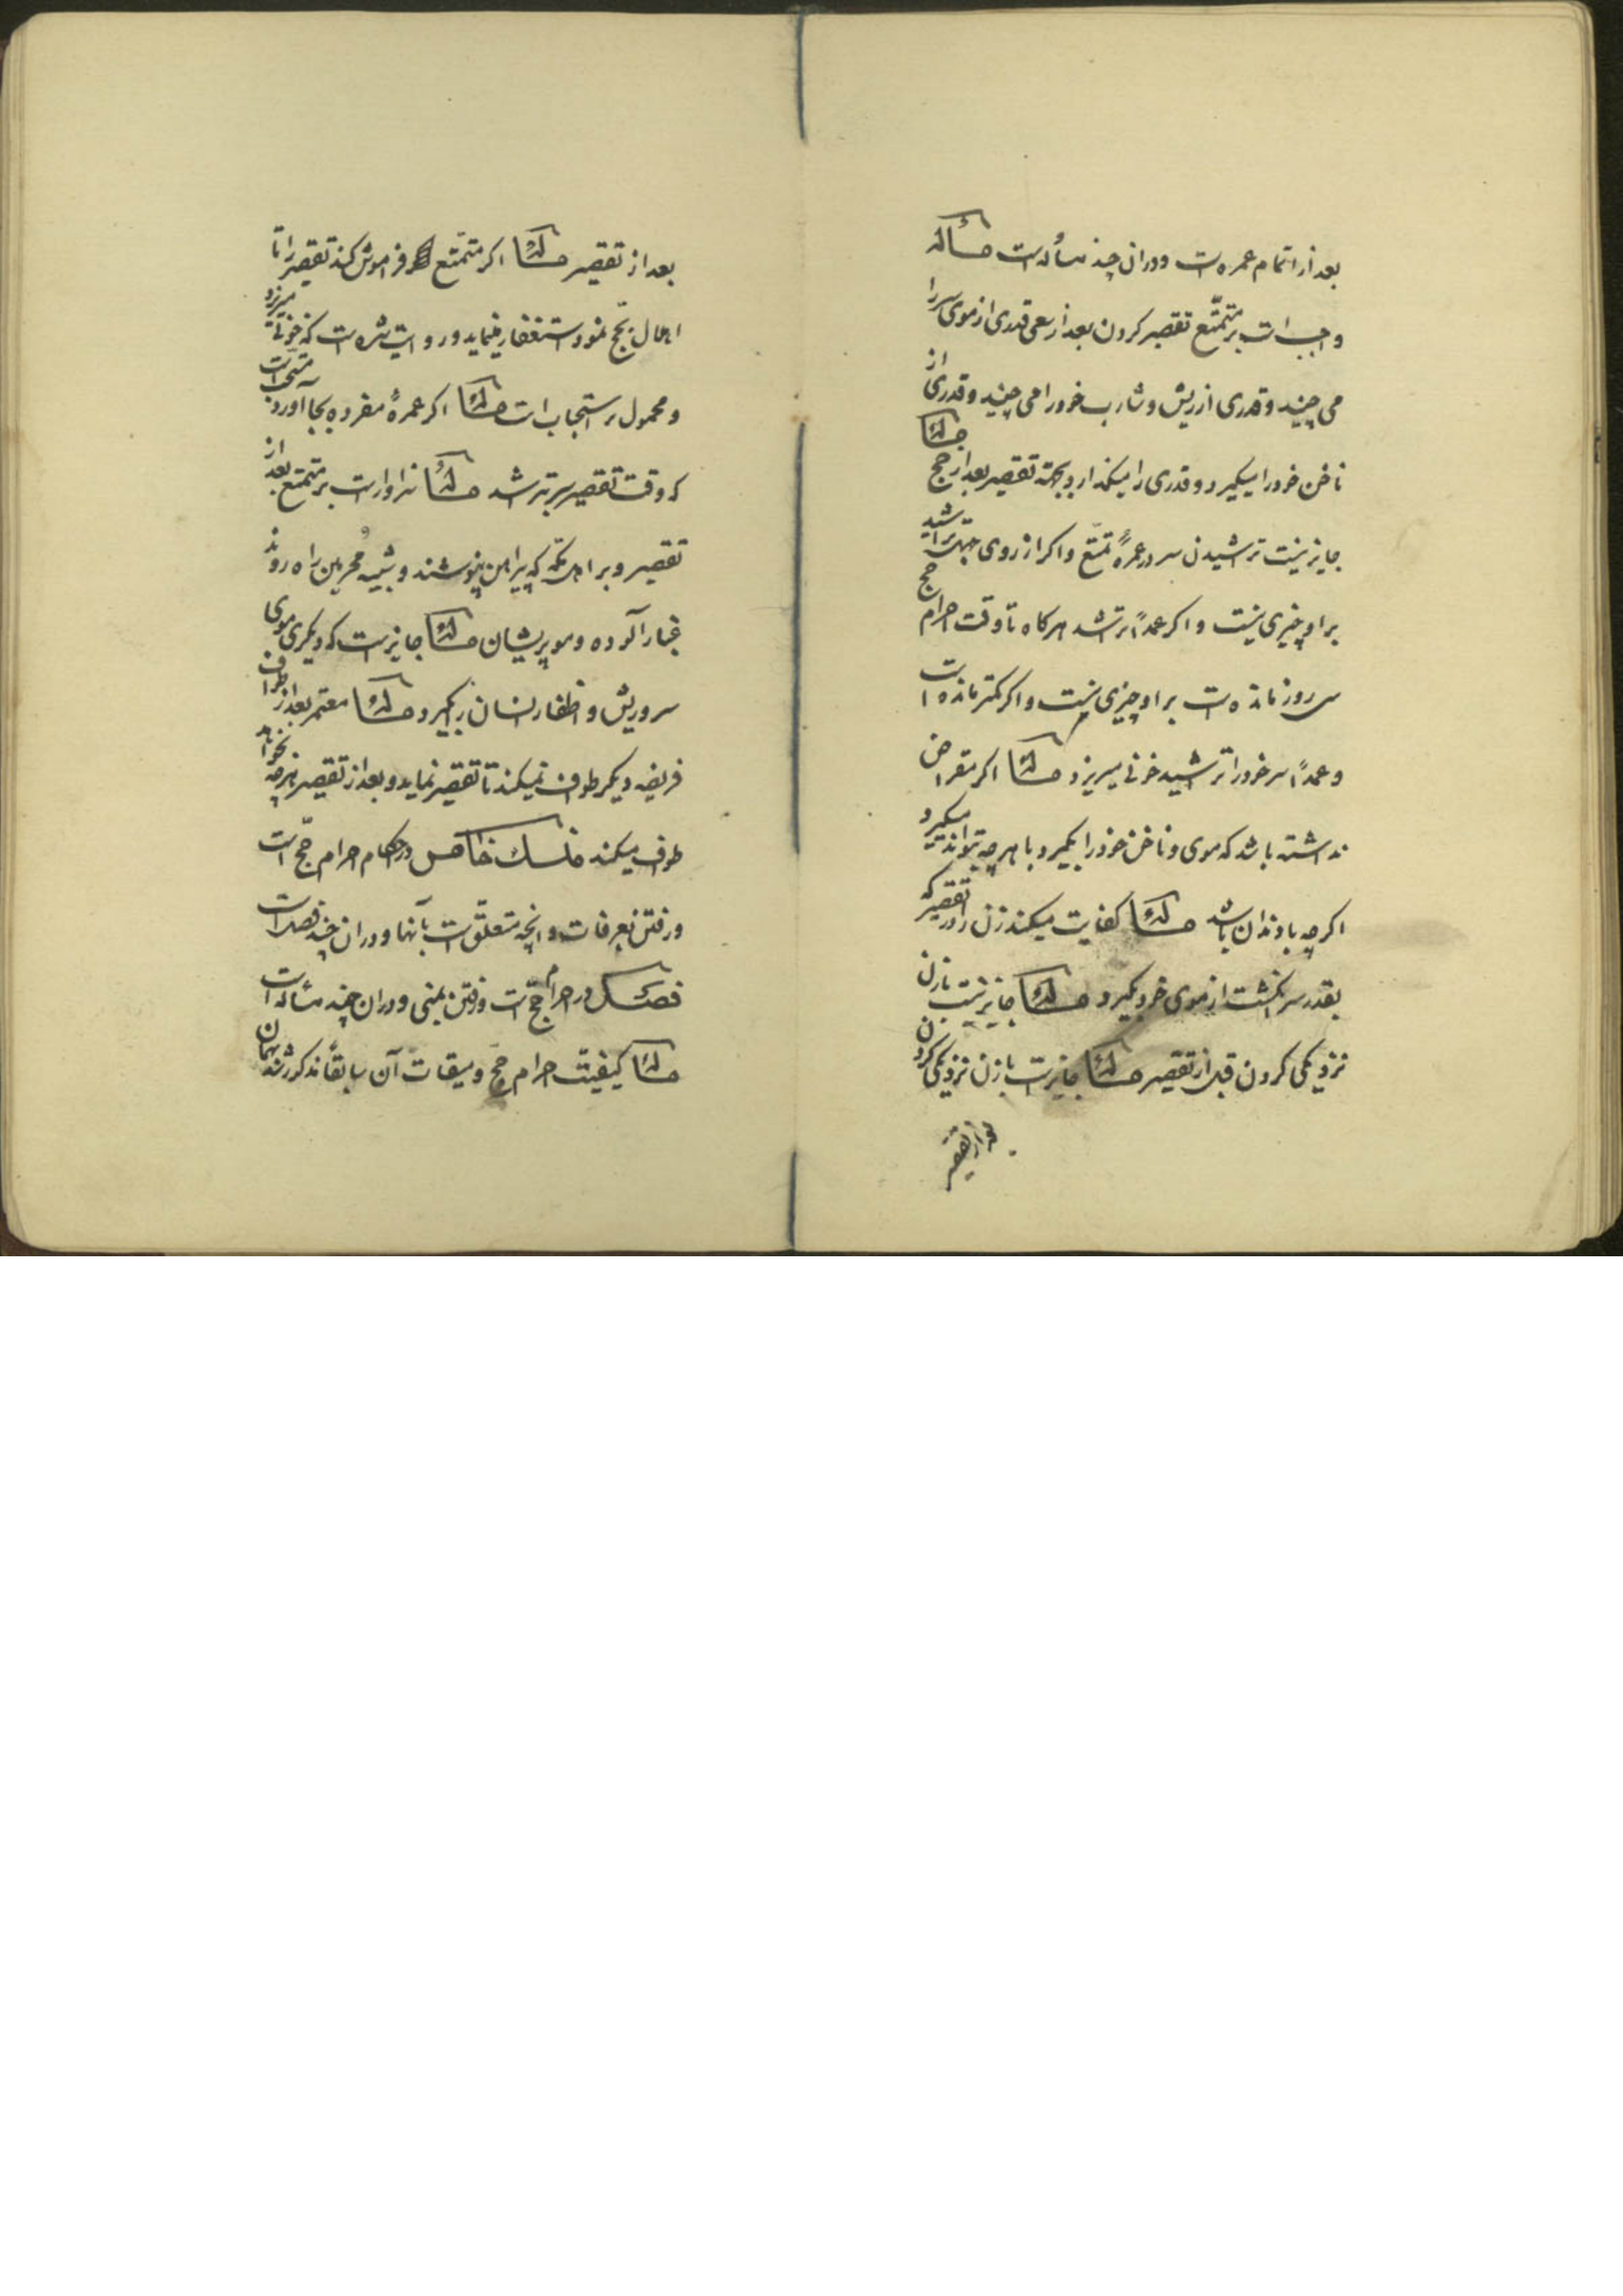 بعد از اتمام عمره است و در ان چند مسأله است مسألة
واجب است بر متمتّع تقصیر کردن بعد از سعی قدری از موی سر را
می چیند و قدری از ریش و شارب خود را می چیند و قدری از
ناخن خود را میگیرد و قدری را میگذارد بجهة تقصیر بعد از حج مسألة
جایز نیست تراشیدن سر در عمرۀ تمتّع و اکر از روی جهل تراشید
بر او چیزی نیست و اکر عمداً تراشد هرکاه تا وقت احرام حج
سی روز مانده است بر او چیزی نیست و اکر کمتر مانده است
و عمداً سر خود را تراشید خونی میریزد مسألة اکر مقراض
نداشته باشد که موی و ناخن خود را بگیرد با هرچه تواند میگیرد
اکرچه با دندان باشد مسألة کفایت میکند زن را در تقصیر که
بقدر سر انگشت از موی خود بگیرد مسألة جایز نیست با زن
نزدیکی کردن قبل از تقصیر مسألة جایز است با زن نزدیکی کردن
بعد از تقصیر
بعد از تقصیر مسألة اکر متمتّع فراموش کند تقصیر را تا
اهلال بحّج نمود استغفار مینماید و روایت شده است که خونی میریزد
و محمول بر استحباب است مسألة اکر عمرۀ مفرده بجا آورد مستحب است
که وقت تقصیر سر بتراشد مسألة سزاوار است بر متمتع بعد از
تقصیر و بر اهل مکّه که پیراهن نپوشند و شبیه مُحرمین راه روند
غبار آلوده و مو پریشان مسألة جایز است که دیگری موی
سر و ریش و اظفار انسان را بگیرد مسألة معتمر بعد از طواف
فریضه دیگر طواف نمیکند تا تقصیر نماید و بعد از تقصیر هرچه بخواهد
طواف میکند منسک خامس در احکام احرام حّج است
و رفتن بعرفات و انچه متعلّق است بآنها و در ان چند فصل است
فصل در احرام حّج است و رفتن بمنی و در ان چند مسأله است
مسألة کیفیّت احرام حج و میقات آن سابقاً مذکور شد بهمان